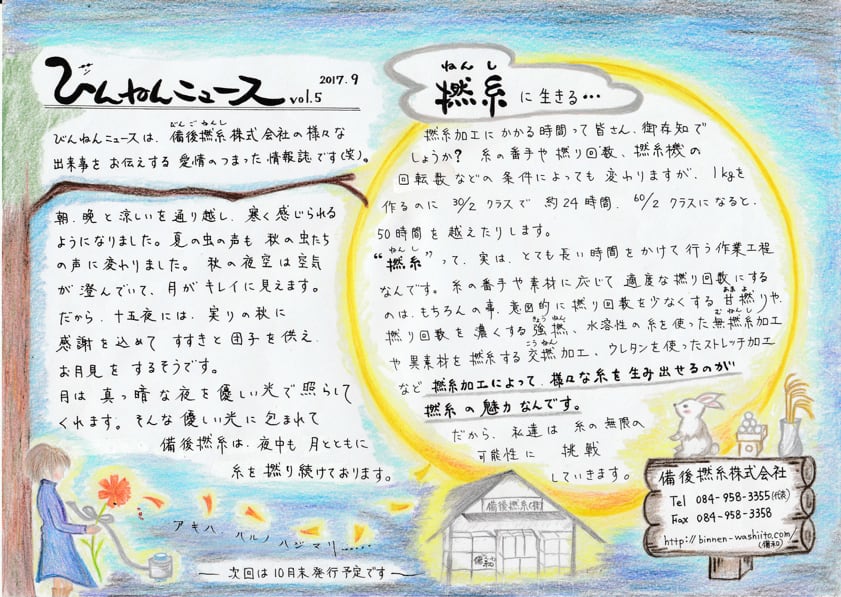 びんねんニュース vol.5 2017.9
びんねんニュースは、備後撚糸株式会社の様々な
出来事をお伝えする愛情のつまった情報誌です(笑)。
朝、晩と涼しいを通り越し、寒く感じられる
ようになりました。夏の虫の声も秋の虫たち
の声に変わりました。秋の夜空は空気
が澄んでいて、月がキレイに見えます。
だから、十五夜には、実りの秋に
感謝を込めてすすきと団子を供え、
お月見をするそうです。
月は真っ暗な夜を優しい光で照らして
くれます。そんな優しい光に包まれて
備後撚糸は、夜中も月とともに
糸を撚り続けております。
アキハ、ハルノハジマリ……
次回は10月末発行予定です
ねんし
撚糸に生きる…
撚糸加工にかかる時間って皆さん、御存知で
しょうか？糸の番手や撚り回数、撚糸機の
回転数などの条件によっても変わりますが、1kgを
作るのに30/2クラスで約24時間、60/2クラスになると、
50時間を越えたりします。
ねんし
“撚糸”って、実は、とても長い時間をかけて行う作業工程
なんです。糸の番手や素材に応じて適度な撚り回数にする
のは、もちろんの事、意図的に撚り回数を少なくする甘撚りや、
撚り回数を濃くする強撚、水溶性の糸を使った無撚糸加工
や異素材を撚糸する交撚加工、ウレタンを使ったストレッチ加工
など撚糸加工によって、様々な糸を生み出せるのが
撚糸の魅力なんです。
だから、私達は糸の無限の
可能性に挑戦
していきます。
備後撚糸(株)
備和
備後撚糸株式会社
Tel 084-958-3355(代表)
Fax 084-958-3358
http://binnen-washiito.com/
(備和)